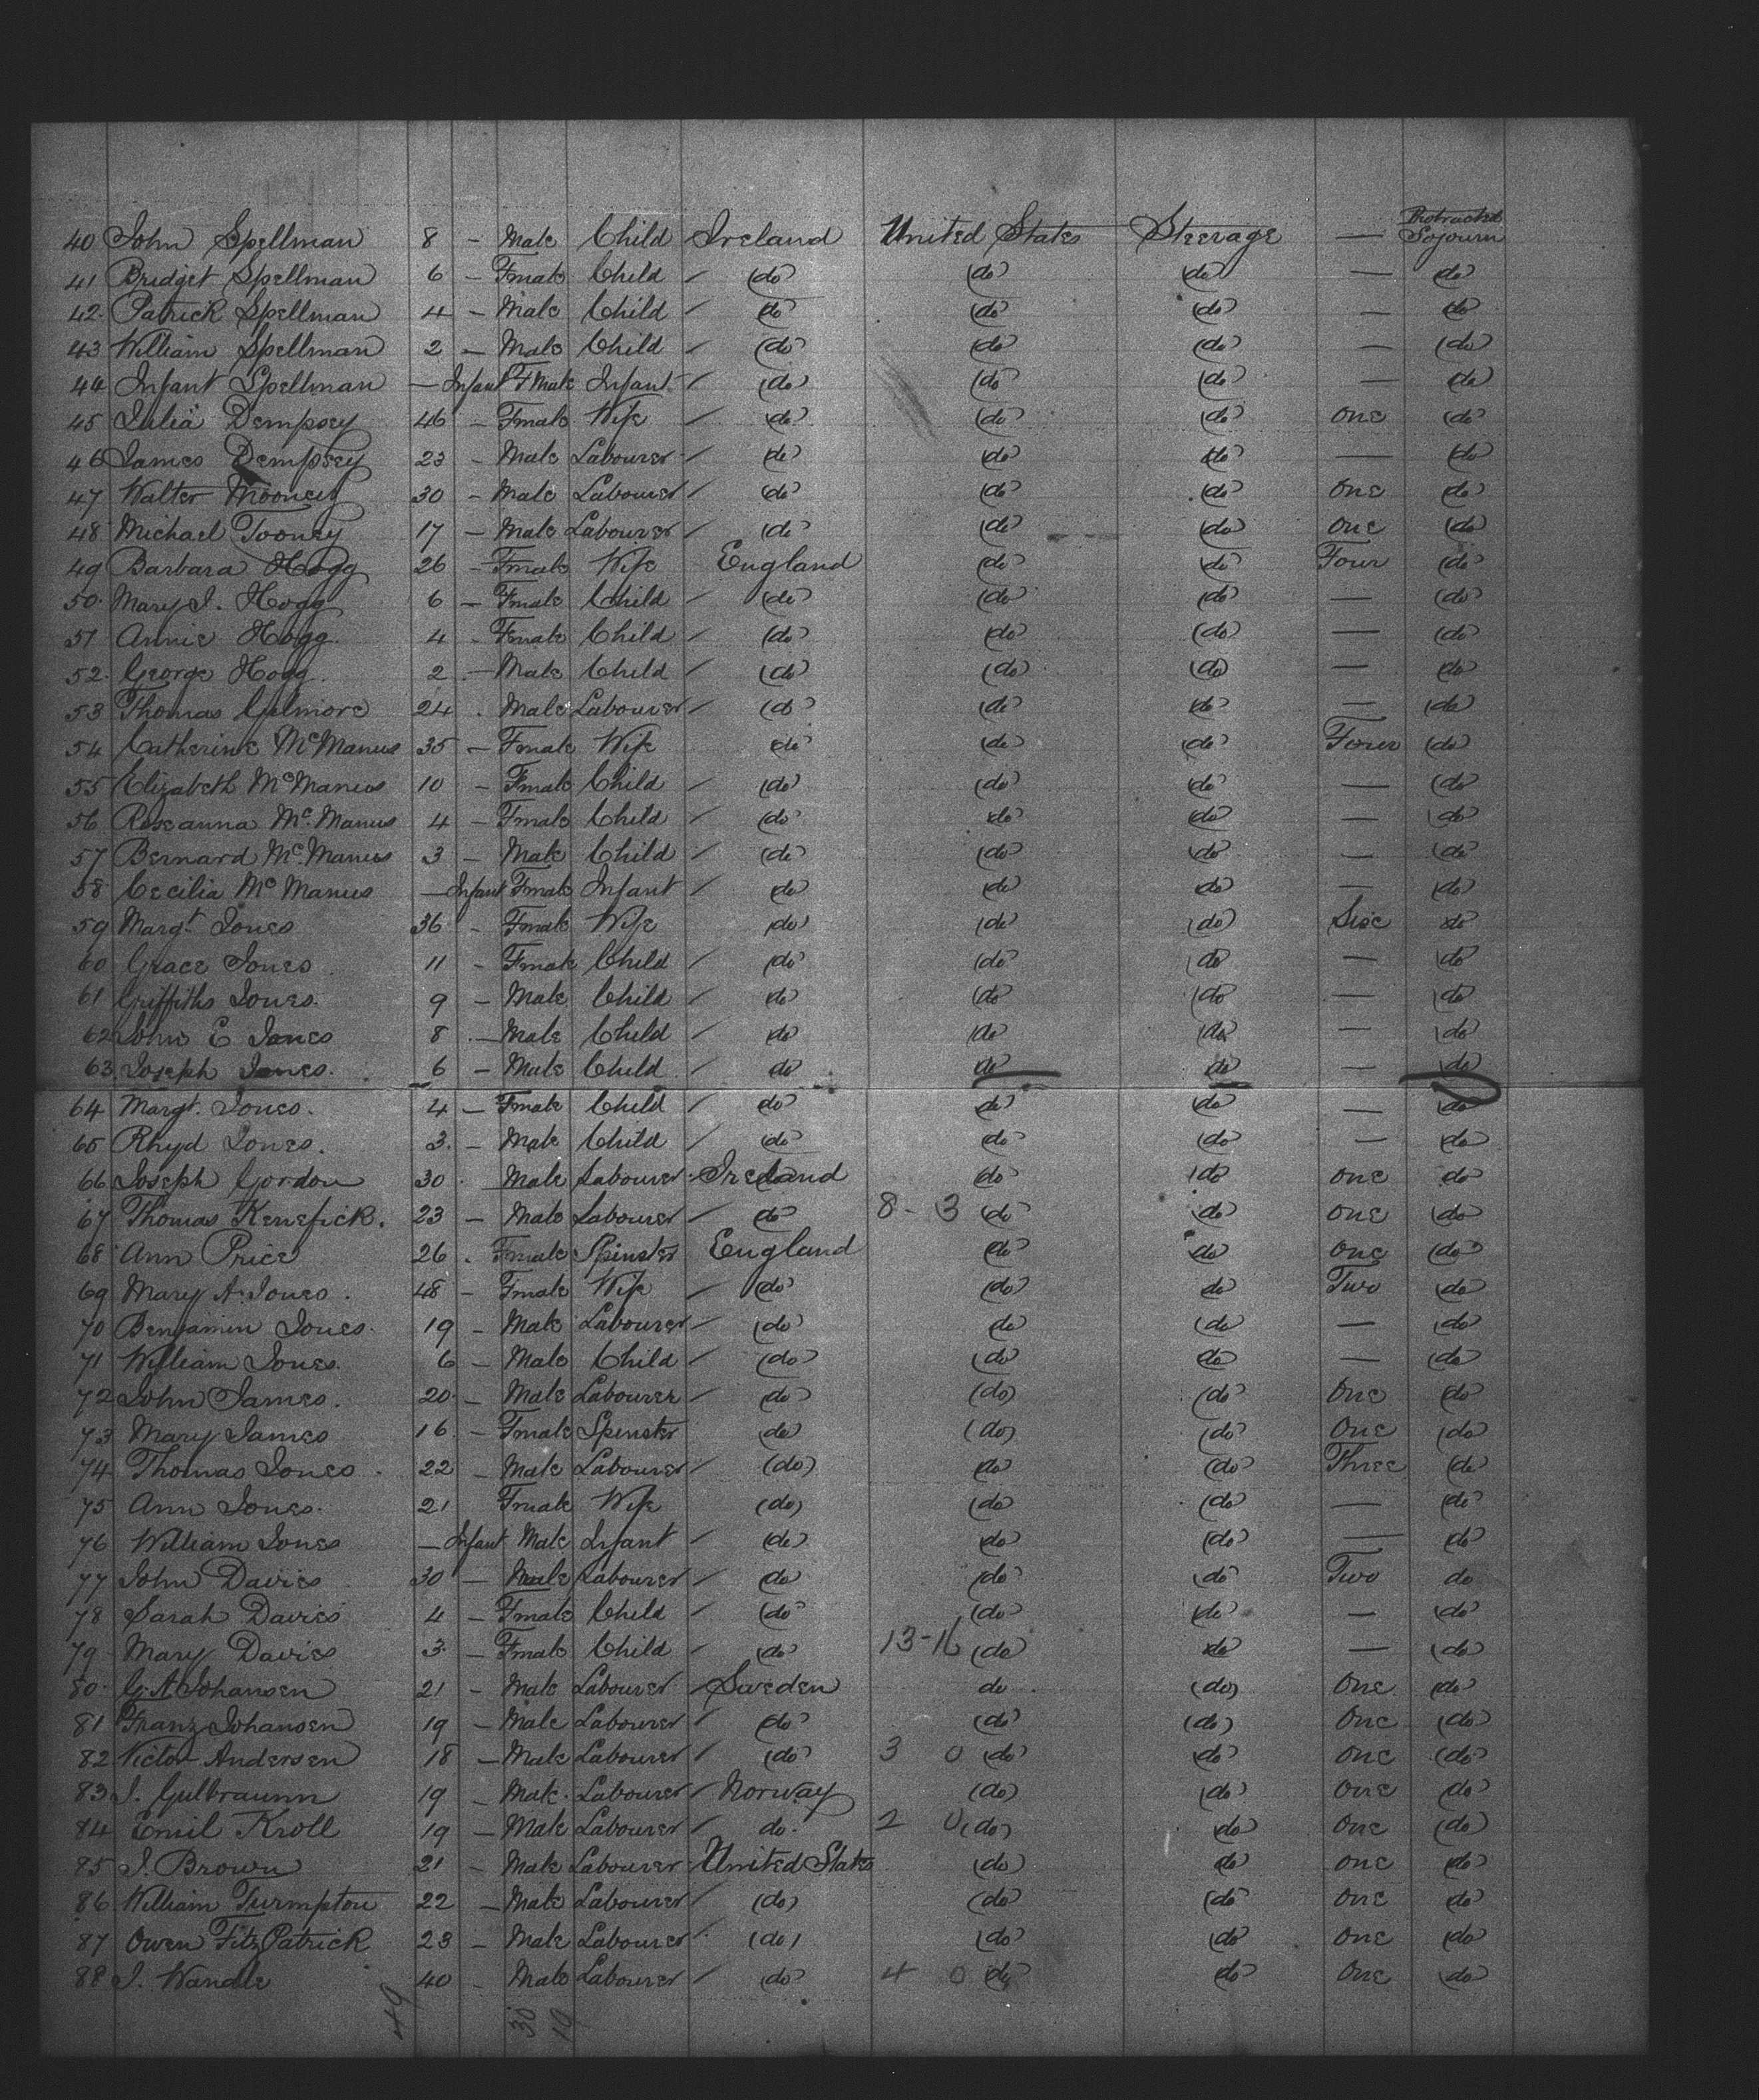 40 John Spellman 8 - Male Child Ireland United States Steerage — Protracted Sojourn
41 Bridget Spellman 6 - Fmale Child / (do) (do) (do) — (do)
42. Patrick Spellman 4 - Male Child / do (do) (do) — do
43 William Spellman 2 - Male Child / (do) (do) (do) — (do)
44 Infant Spellman — Infant Fmale Infant / (do) (do) (do) — (do)
45 Julia Dempsey 46 - Fmale Wife / (do) (do) (do) One (do)
46 James Dempsey 23 - Male Labourer / (do) (do) (do) — (do)
47 Walter Mooney 30 - Male Labourer / (do) (do) (do) One (do)
48 Michael Tooney 17 - Male Labourer / (do) (do) (do) One (do)
49 Barbara Hogg 26 - Fmale Wife England (do) (do) Four (do)
50. Mary J. Hogg 6 - Fmale Child / (do) (do) (do) — (do)
51 Annie Hogg. 4 - Fmale Child / (do) (do) (do) — (do)
52. George Hogg. 2 - Male Child / (do) (do) (do) — (do)
53 Thomas Gilmore 24 . Male Labourer / (do) (do) (do) — (do)
54 Catherine McManus 35 - Fmale Wife (do) (do) (do) Four (do)
55 Elizabeth McManus 10 - Fmale Child / (do) (do) (do) — (do)
56 Roseanna Mc.Manus 4 - Fmale Child / (do) (do) (do) — (do)
57 Bernard Mc.Manus 3 - Male Child / (do) (do) (do) — (do)
58 Cecilia McManus — Infant Fmale Infant / (do) (do) (do) — (do)
59 Margt. Jones 36 - Fmale Wife (do) (do) (do) Six do
60 Grace Jones 11 - Fmale Child / (do) (do) (do) — (do)
61 Griffiths Jones. 9 - Male Child / (do) (do) (do) — (do)
62 John E Jones 8 - Male Child / (do) (do) (do) — (do)
63. Joseph Jones. 6 - Male Child / (do) (do) (do) — (do)
64 Margt. Jones. 4 - Fmale Child / (do) (do) (do) — (do)
65 Rhyd Jones. 3. - Male Child / (do) (do) (do) — (do)
66 Joseph Gordon 30 - Male Labourer Ireland (do) (do) One do
67 Thomas Kenefick. 23 - Male Labourer / (do) 8 - 3 (do) (do) One (do)
68 Ann Price 26 . Fmale Spinster England (do) (do) One (do)
69 Mary A. Jones . 48 - Fmale Wife / (do) (do) do Two (do)
70 Benjamin Jones. 19 - Male Labourer / (do) (do) (do) — (do)
71 William Jones. 6 - Male Child / (do) (do) (do) — (do)
72 John James. 20 - Male Labourer / (do) (do) (do) One (do)
73 Mary James 16 - Fmale Spinster (do) (do) (do) One (do)
74 Thomas Jones . 22 - Male Labourer / (do) (do) (do) Three (do)
75 Ann Jones. 21 Fmale Wife (do) (do) (do) — (do)
76 William Jones — Infant Male Infant / (do) (do) (do) — (do)
77 John Davies 30 - Male Labourer / (do) (do) (do) Two do
78 Sarah Davies 4 - Fmale Child / (do) (do) (do) — (do)
79 Mary Davies 3. - Fmale Child / (do) 13-16 (do) (do) — (do)
80. G. A Johansen 21 - Male Labourer / Sweden do (do) One (do)
81 Franz Johansen 19 - Male Labourer / (do) (do) (do) One (do)
82 Victor Andersen 18 - Male Labourer / (do) 3 0 (do) (do) One (do)
83 J. Gulbraunn 19 - Male. Labourer / Norway (do) (do) One (do)
84 Emil Kroll 19 - Male Labourer / do. 2 0 (do) (do) One (do)
85 J. Brown 21 - Male Labourer United States (do) (do) One (do)
86 William Turmpton 22 - Male Labourer / (do) (do) (do) One (do)
87 Owen FitzPatrick 23 - Male Labourer (do) (do) (do) One (do)
88 J. Wandle 40 - Male Labourer / (do) 4 0 (do) (do) One (do)
49 30 19